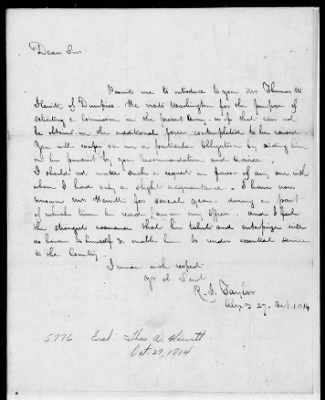 Dear Sir
Permit me to introduce to you Mr Thomas W
Hewitt of Dumfries. He visits Washington for the purpose of
soliciting a Commission in the present Army, or if that can not
be obtained in the additional forces contemplated to be raised
You will confer on me a particular obligation by aiding him
in his pursuit by your recommendation and
I should not make such a request in favor of any one with
whom I had only a slight acquaintance. I have now
known Mr Hewitt for several years during a part
of which time he read Law in my office. and I feel
the strongest assurance that his talents and enterprize will
do honor to himself & enable him to render essential service
to the Country.
I remain with respect
yr ob Servt
R. I. Taylor
Alexa 27. Oct. 1814
5776 Encl. Thos. W. Hewitt
Oct 27, 1814